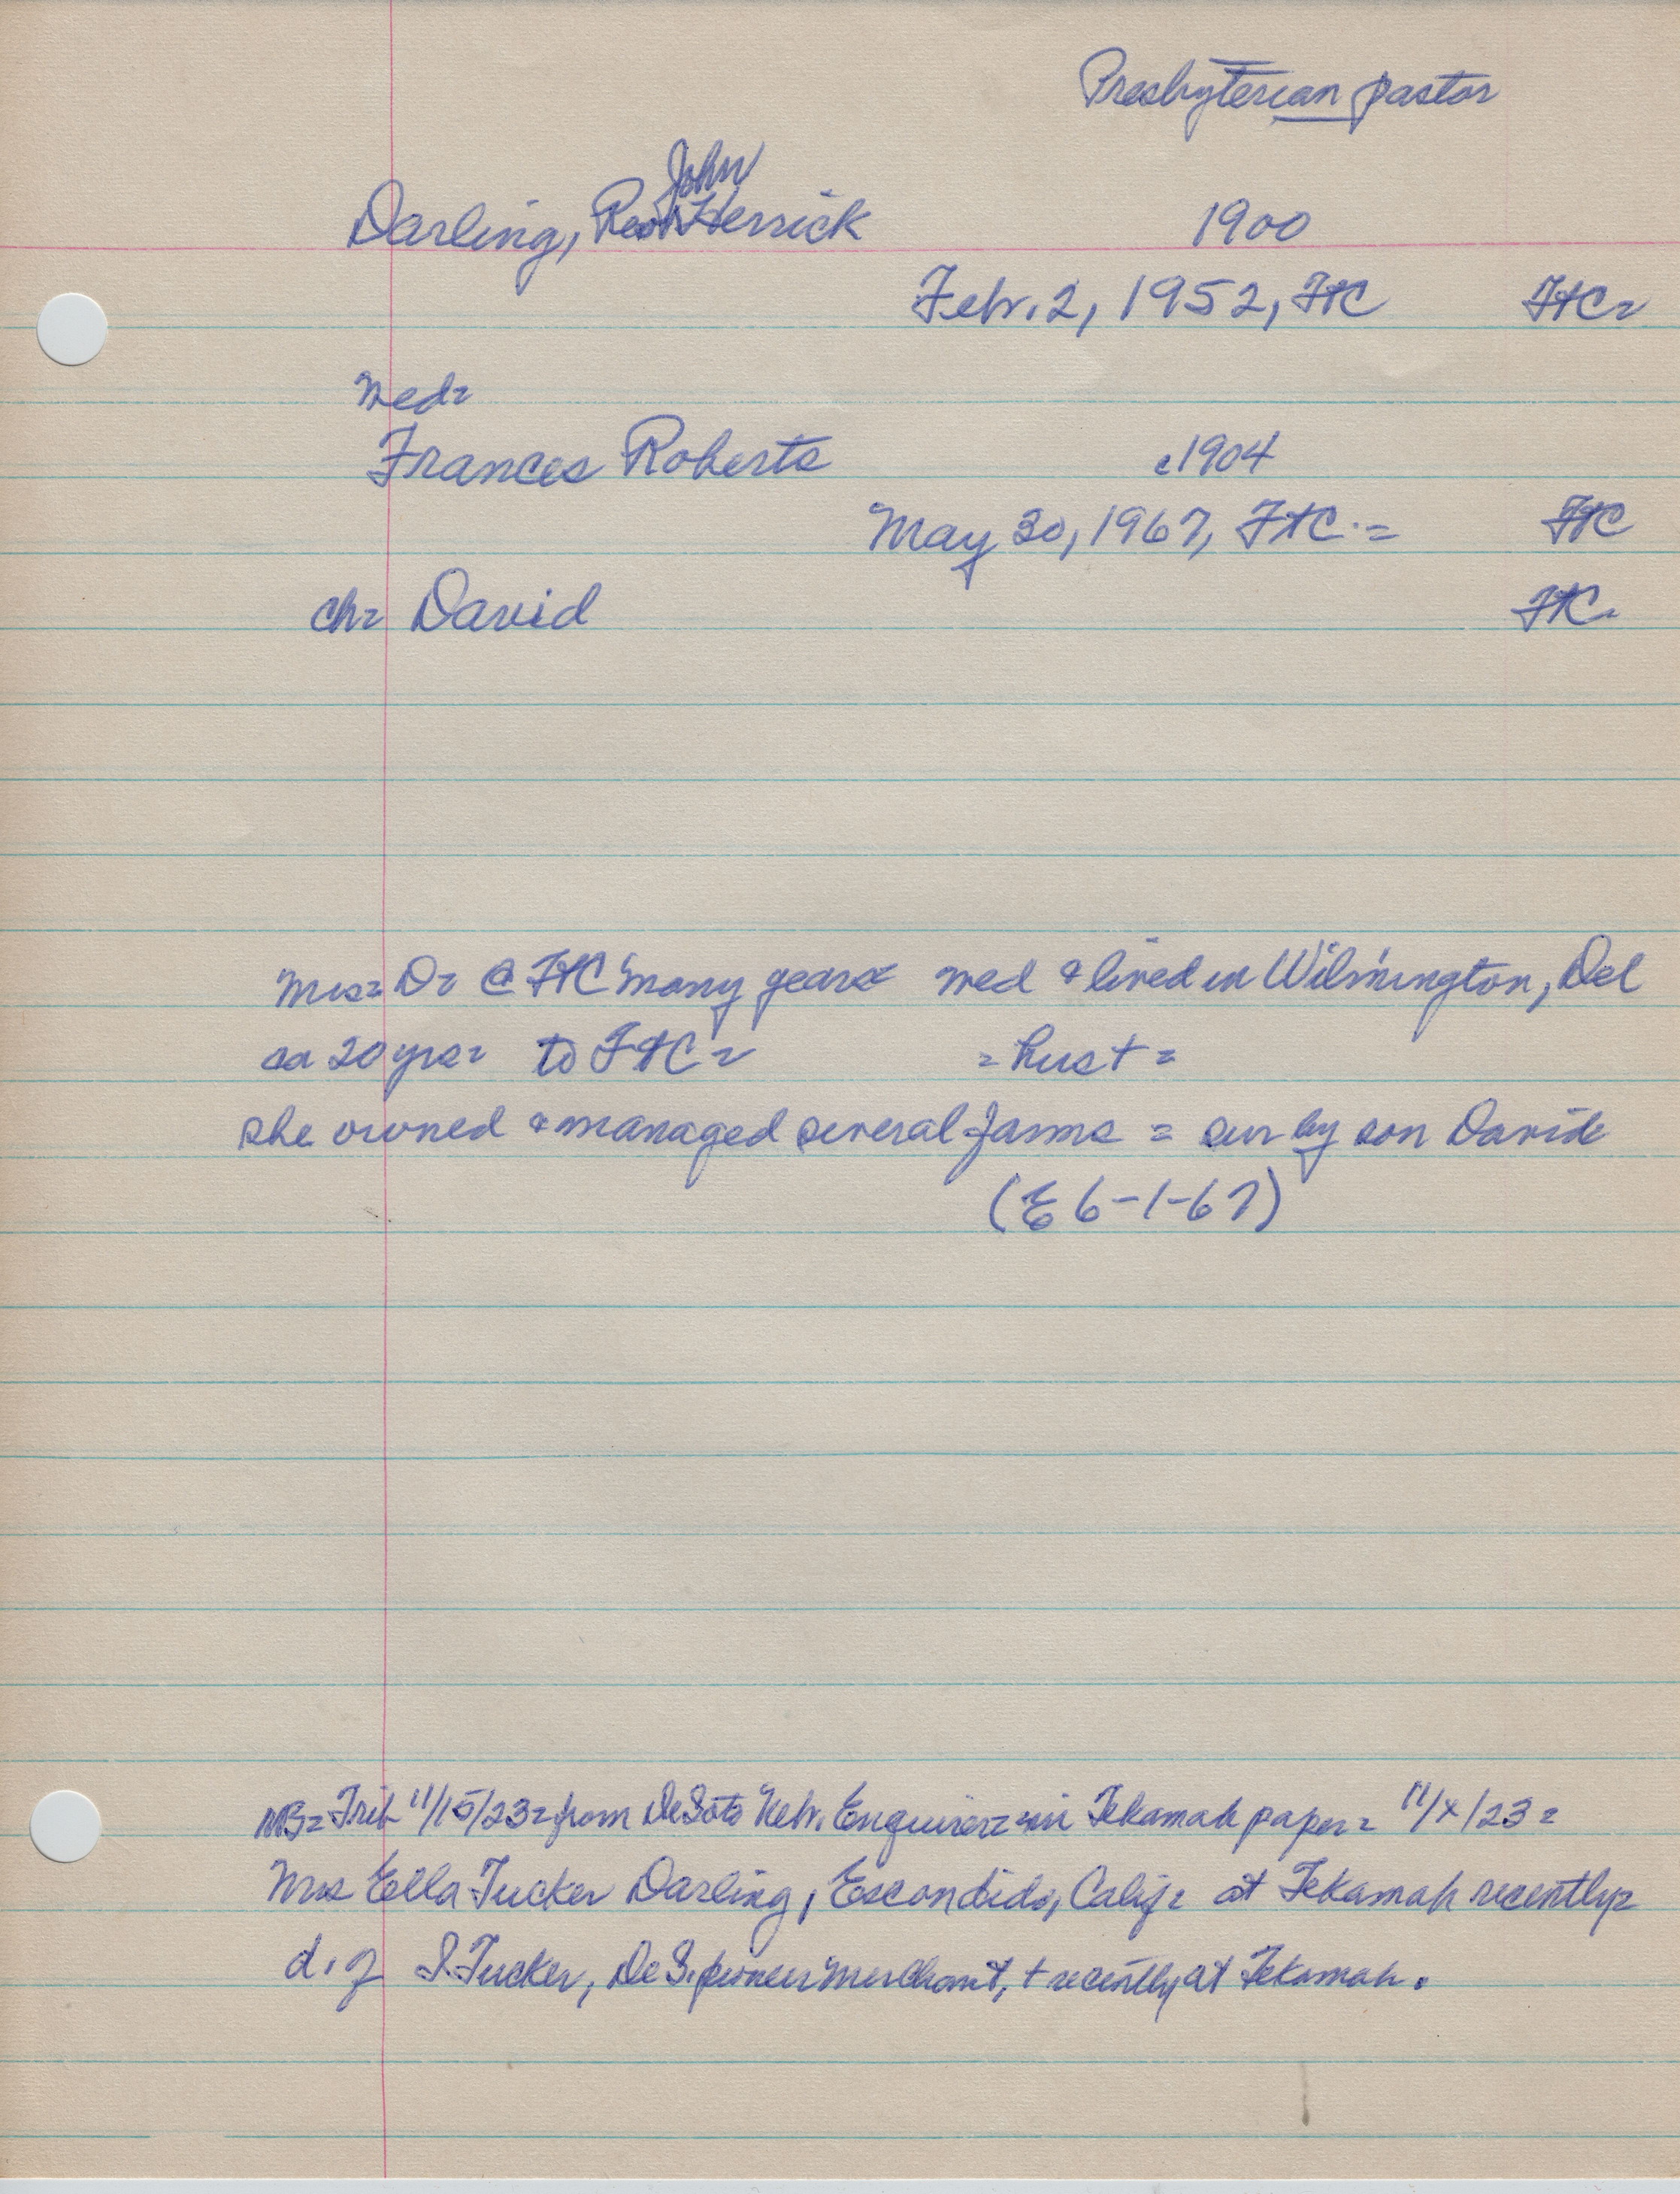 Presbyterian pastor
John
Darling, Rev Herrick 1900
Feb. 2, 1952, FtC FtC=
Med=
Frances Roberts c1904
May 30, 1967, FtC.= FtC
ch= David FtC.
Mrs= D= @ FtC many years med & lived in Wilmington, Del
ca 20 yrs= to FtC= = hus + =
she owned & managed several farms = sur by son David
(E 6-1-67)
NB= Trib 11/15/23= from DeSoto Nebr. Enquirer= in Tekamah paper= 11/x/23=
Mrs Ella Tucker Darling, Escondido, Calif= at Tekamah recently=
d. of S. Tucker, De S. pioneer merchant, + recently at Tekamah.